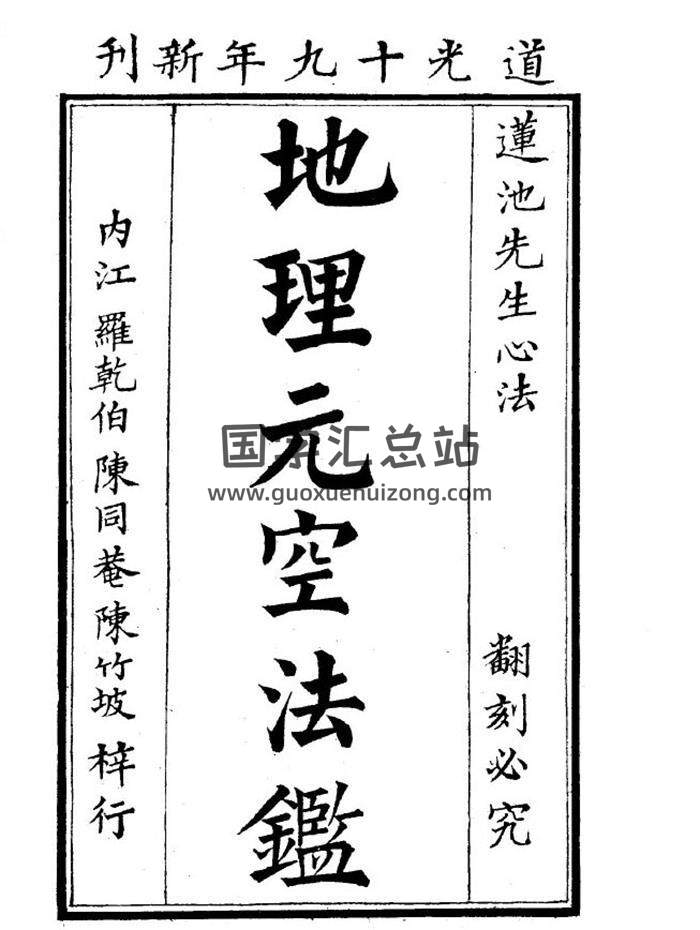 道光十九年新刊
蓮池先生心法
翻刻必究
地理元空法鑑
内江 羅乾伯 陳同菴 陳竹坡 梓行
国学汇总站
www.guoxuehuizong.com